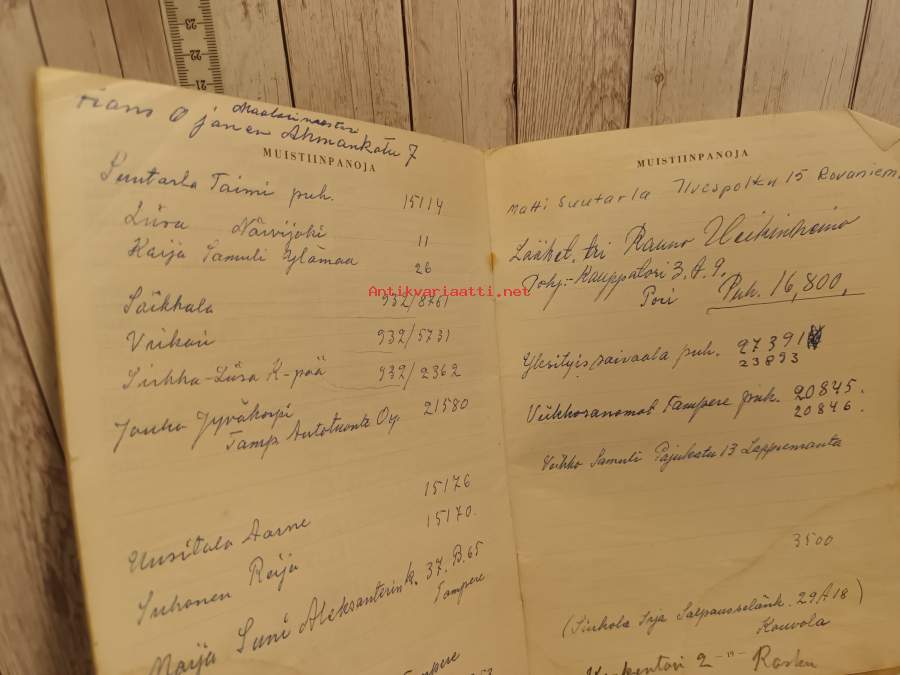 23
22
21
Maalarimestari
Hans Ojanen Ahmankatu 7
MUISTIINPANOJA
Suutarla Taimi puh. 15114
Liisa Närvijoki 11
Kaija Samuli Ylämaa 26
Säkkala 932/8761
932/5731
Sirkka-Liisa K-pää 932/2362
Jouko Jyväkorpi 21580
Tamp Autotuonti Oy.
15176
15170.
Uusitalo Aarne
Suhonen Reija
Maija Suni Aleksanterink. 37. B. 65
Tampere
MUISTIINPANOJA
Matti Suutarla Ilvespolku 15 Rovaniemi
Lääket. tri Rauno Heikinheimo
Pohj.-Kauppatori 3. A. 9.
Pori Puh. 16,800.
puh. 27391
23893
Viikkosanomat Tampere puh. 20845.
20846.
Veikko Samuli Pajukatu 13 Lappeenranta
3500
(Sinkola Irja Salpausselänk. 29 A 18)
Kouvola
Antikvariaatti.net